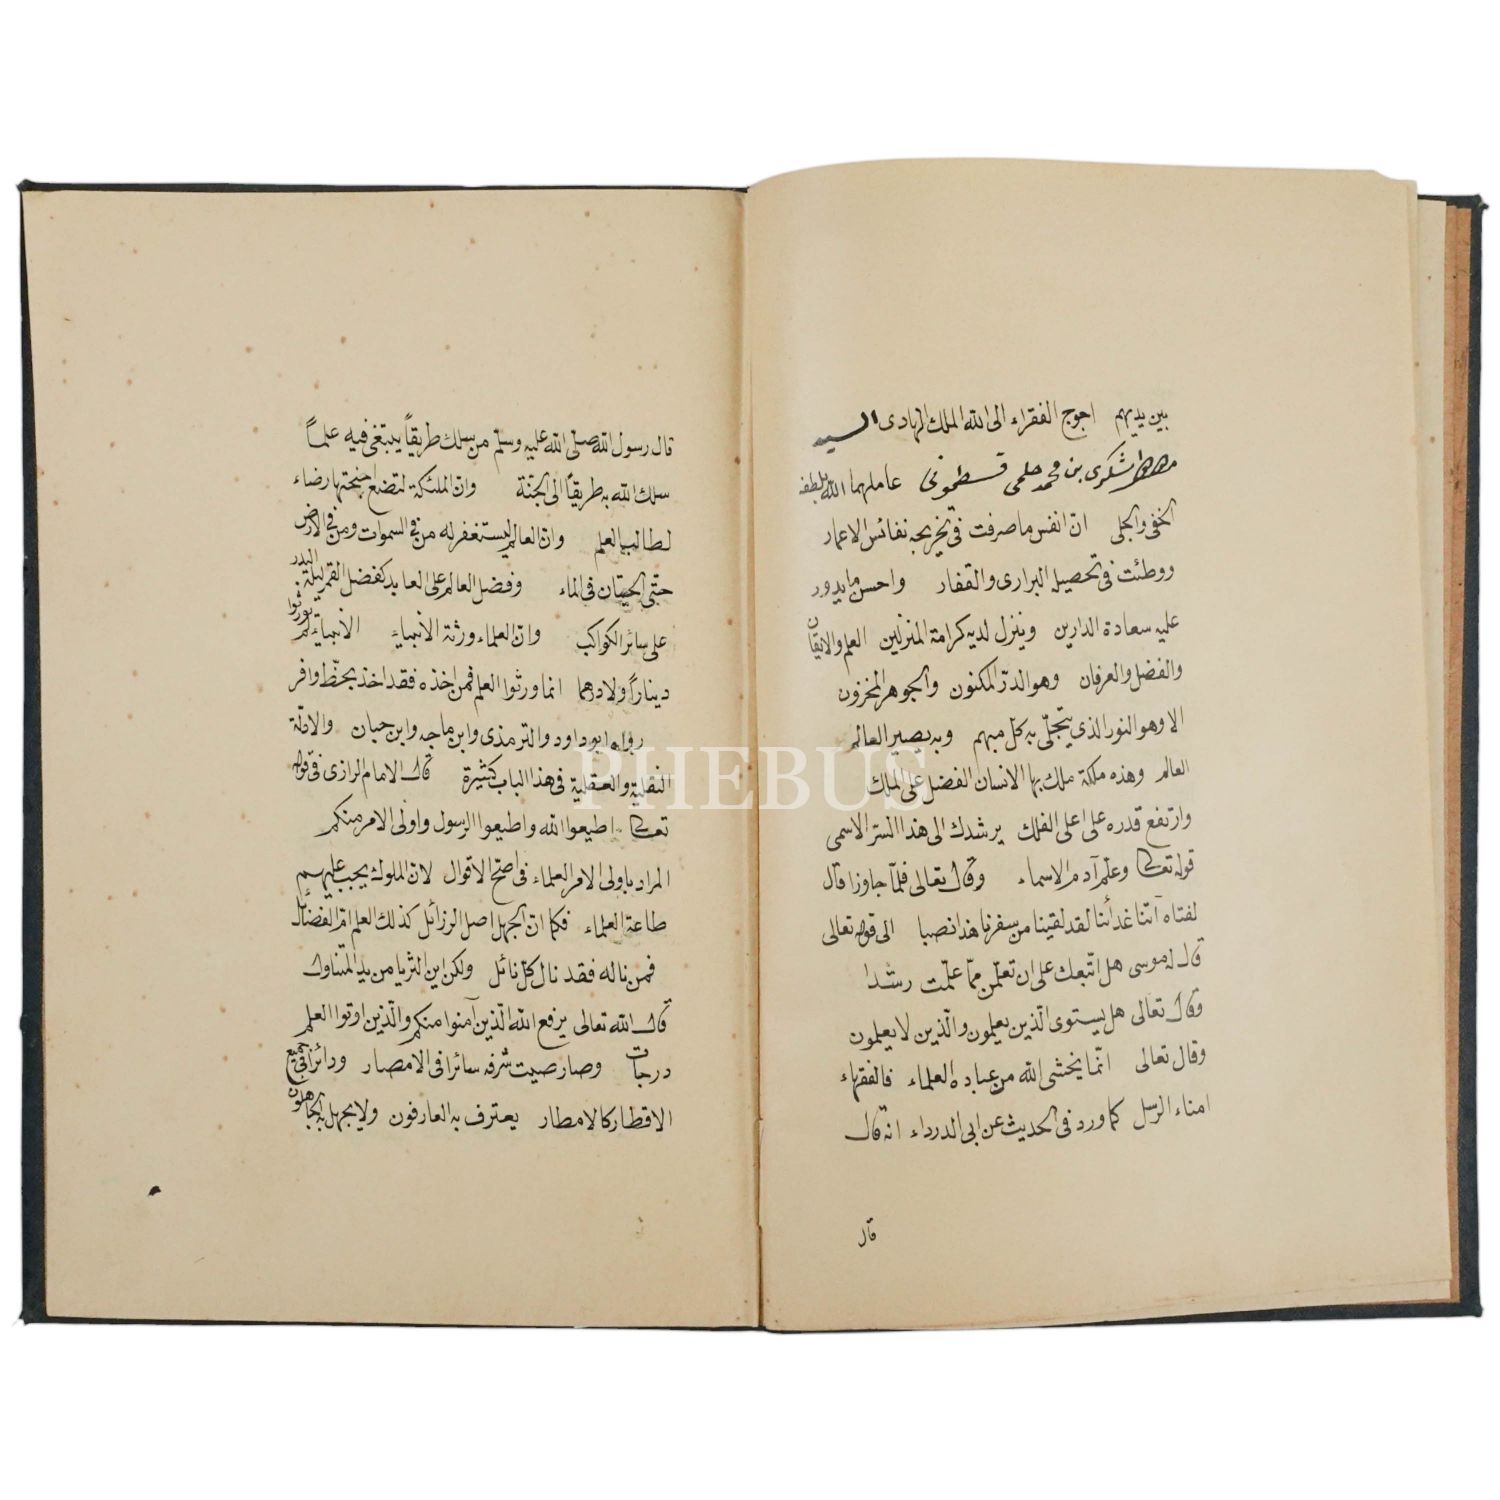 بين يديهم احوج الفقراء الى الله الملك الهادى السيد
شكرى بن محمد حلمى قسطمونى عاملهما الله بلطفه
الخفى والجلى ان انفس ما صرفت فى تخريجه نفائس الاعمار
ووطئت فى تحصيله البرارى والقفار واحسن ما يدور
عليه سعادة الدارين وينزل لديه كرامة المنزلين العلم والايقان
والفضل والعرفان وهو الدرّ المكنون والجوهر المخزون
الا وهو النور الذى يتجلّى به كل مبهم وبه يصير العالم
العالم وهذه ملكة ملك بها الانسان الفضل على الملك
وارتفع قدره على اعلى الفلك يرشدك الى هذا السرّ الاسمى
قوله تعالى وعلّم آدم الاسماء وقال تعالى فلمّا جاوزا قال
لفتاه آتنا غدائنا لقد لقينا من سفرنا هذا نصبا الى قوله تعالى
قال له موسى هل اتّبعك على ان تعلّمن ممّا علّمت رشدا
وقال تعالى هل يستوى الّذين يعلمون والّذين لا يعلمون
وقال تعالى انّما يخشى الله من عباده العلماء فالفقهاء
امناء الرسل كما ورد فى الحديث عن ابى الدرداء انه قال
قال
قال رسول الله صلّى الله عليه وسلّم من سلك طريقاً يبتغى فيه علماً
سلك الله به طريقاً الى الجنّة وانّ الملئكة لتضع اجنحتها رضاء
لطالب العلم وان العالم ليستغفر له من فى السموات ومن فى الارض
حتى الحيتان فى الماء وفضل العالم على العابد كفضل القمر ليلة البدر
على سائر الكواكب وانّ العلماء ورثة الانبياء الانبياء لم يورثوا
ديناراً ولا درهما انما ورثوا العلم فمن اخذه فقد اخذ بحظّ وافر
رواه ابو داود والترمذى وابن ماجه وابن حبان والادلّة
النقلية والعقلية فى هذا الباب كثيرة قال الامام الرازى فى قوله
تعالى اطيعوا الله واطيعوا الرسول واولى الامر منكم
المراد باولى الامر العلماء فى اصحّ الاقوال لانّ الملوك يجب عليهم
طاعة العلماء فكما انّ الجهل اصل الرزائل كذلك العلم امّ الفضائل
فمن ناله فقد نال كلّ نائل ولكن اين الثريا من يد المتناول
قال الله تعالى يرفع الله الّذين آمنوا منكم والّذين اوتوا العلم
درجات وصار صيت شرفه سائرا فى الامصار ودائرا فى جميع
الاقطار كالامطار يعترف به العارفون ولا يجهل به الجاهلون
PHEBUS